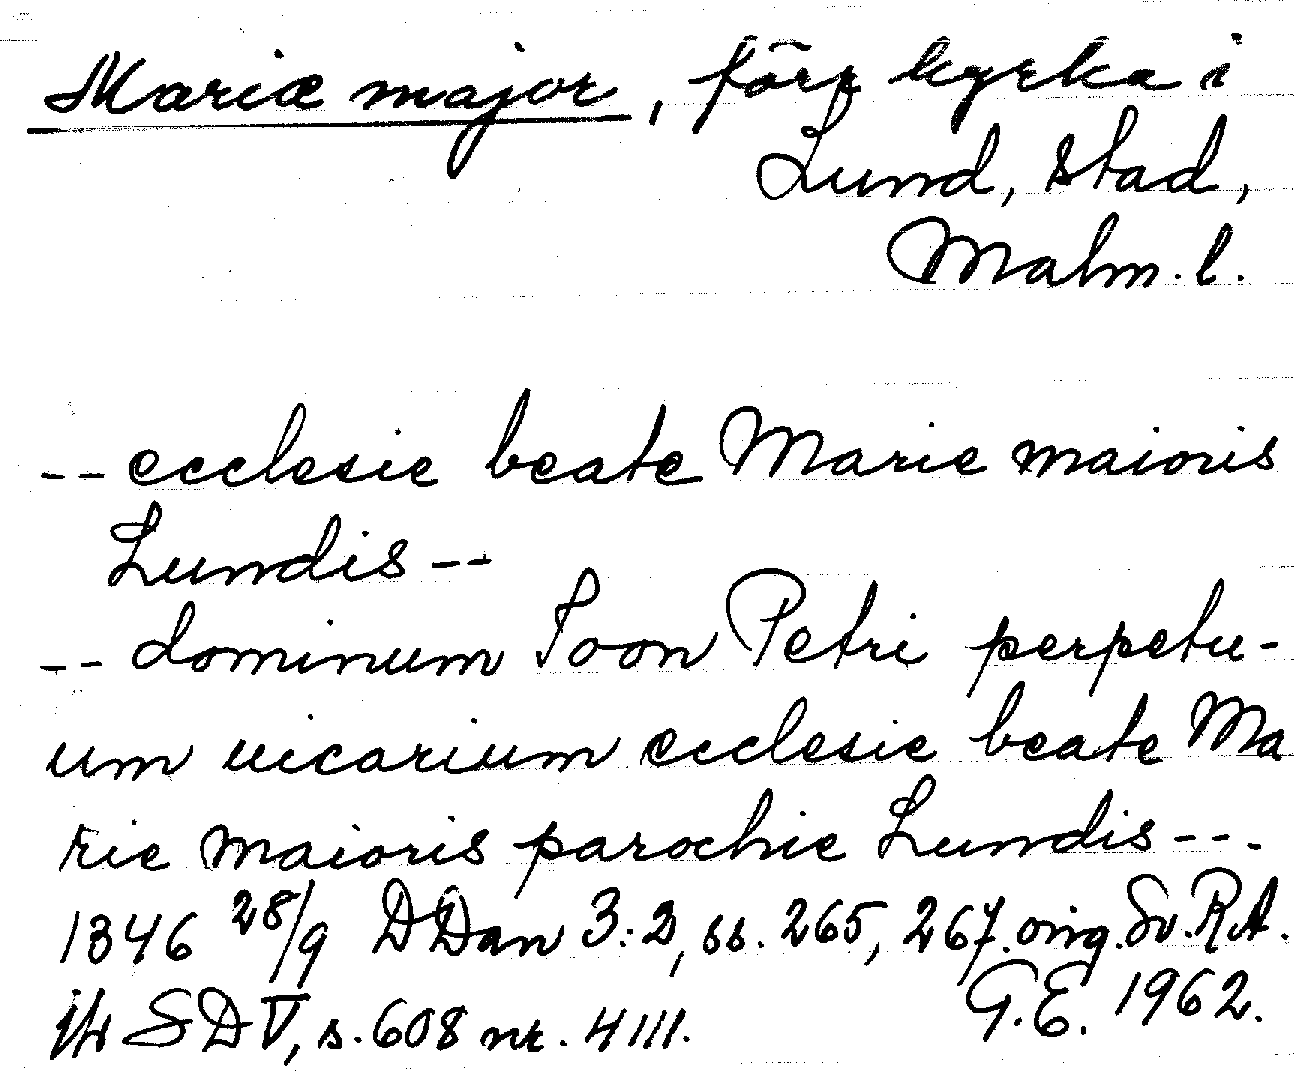 Mariæ major, förr kyrka i
Lund, stad,
Malm. l.
-- ecclesie beate Marie maioris
Lundis --
-- dominum Toon Petri perpetu-
um uicarium ecclesie beate Ma
rie maioris parochie Lundis --.
1346 28/9 DDan 3:2, ss. 265, 267. orig. Sv. R.A.
jfr SD V, s. 608 nr. 4111.
G.E. 1962.